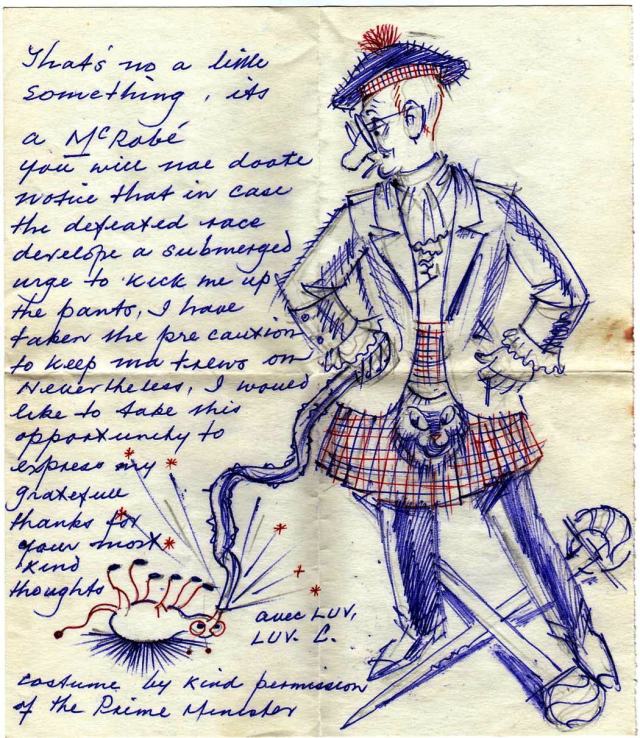 That's no a little
something, its
a McRobé
you will nae doote
notice that in case
the defeated race
develope a submerged
urge to kick me up
the pants, I have
taken the precaution
to keep ma trews on
Nevertheless, I would
like to take this
opportunity to
express my
gratefull
thanks for
your most
kind
thoughts
avec LUV,
LUV. C.
costume by kind permission
of the Prime Minister